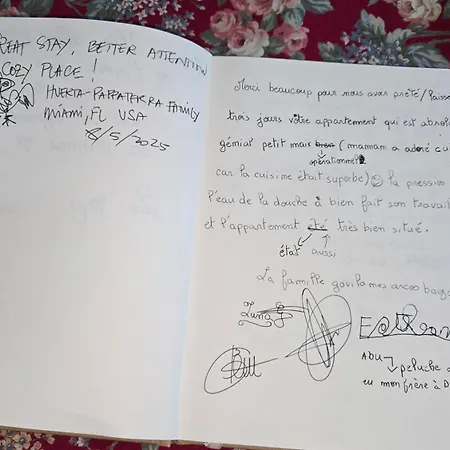 REAT STAY, BETTER ATTENTION
COZY PLACE !
HUERTA-PAPPATERRA FAMILY
MIAMI, FL USA
8/5/2025
Merci beaucoup pour nous avoir prêté/laisse
trois jours vôtre appartement qui est absolu
génial petit mais bien (mamam a adoré cui
opérationnel
car la cuisine était superbe) la pression
l'eau de la douche à bien fait son travail
et l'appartement été très bien situé.
état aussi
La famille
ADU peluche
eu mon frère à D